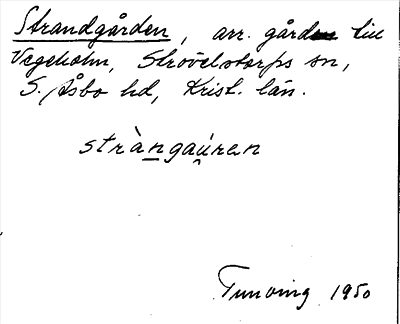 Strandgården, arr. gård till
Vegeholm, Strövelstorps sn,
S. Åsbo hd, Krist. län.
stràngaúren
Tunving 1950